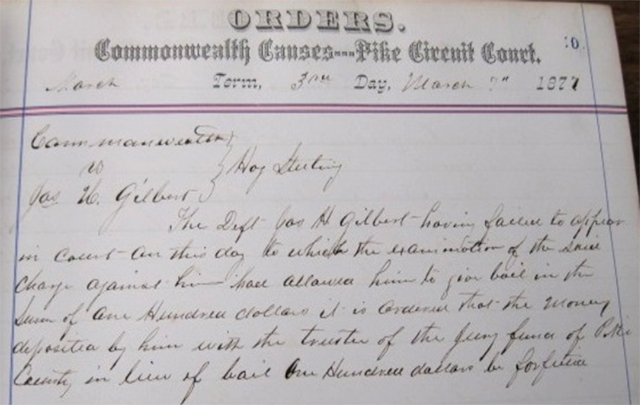 ORDERS.
Commonwealth Causes---Pike Circuit Court.
March Term, 3rd Day, March 7" 1877
Commonwealth
vs } Hog Steeling
Jas H. Gilbert
The Deft Jas H Gilbert having failed to appear
in court on this day to which the examination of the said
charge against him had allowed him to give bail in the
sum of One Hundred dollars it is ordered that the money
deposited by him with the trustee of the Jury fund of Pike
County in lieu of bail One Hundred dollars be forfeited